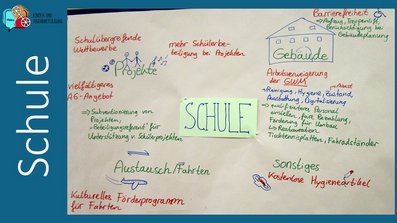 KINDER- UND
JUGENDBETEILIGUNG
Schule
Schulübergreifende
Wettbewerbe
Projekte
mehr Schülerbe-
teiligung bei Projekten
vielfältigeres
AG-Angebot
⇒ Subventionierung von
Projekten,
"Beteiligungsreferent" für
Unterstützung v. Schülerprojekten
SCHULE
Barrierefreiheit
⇒ Aufzug, Treppenlift,
Berücksichtigung bei
Gebäudeplanung
Gebäude
Arbeitsverweigerung
der GWM
⇒ Reinigung, Hygiene, Zustand,
Ausstattung, Digitalisierung
⇒ qualifizierteres Personal
einstellen, faire Bezahlung,
Förderung für Umbau
Tischtennisplatten, Fahrradständer
Austausch/Fahrten
Kulturelles Förderprogramm
für Fahrten
Sonstiges
Kostenlose Hygieneartikel